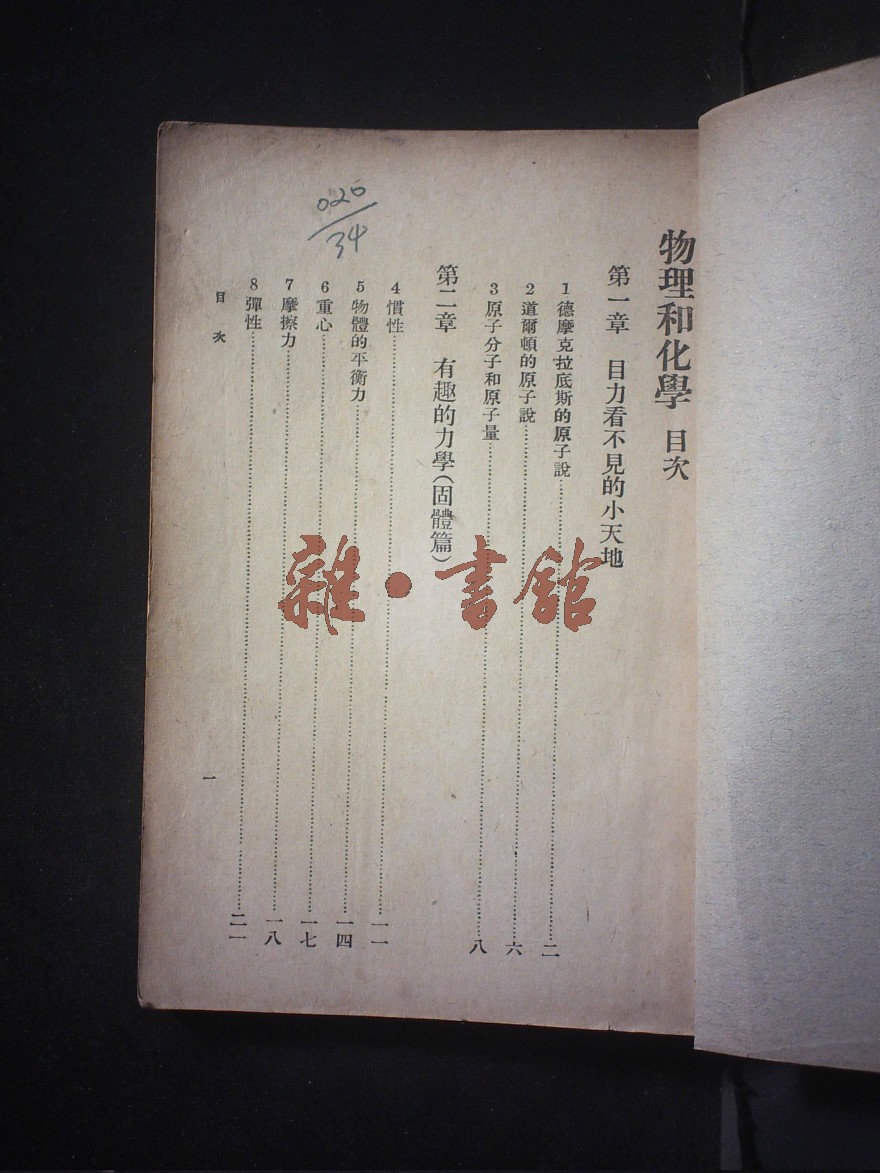 物理和化學 目次
第一章 目力看不見的小天地
1 德摩克拉底斯的原子說 二
2 道爾頓的原子說 六
3 原子分子和原子量 八
第二章 有趣的力學(固體篇)
4 慣性 一一
5 物體的平衡力 一四
6 重心 一七
7 摩擦力 一八
8 彈性 二一
目次 一
020
34
雜·書館